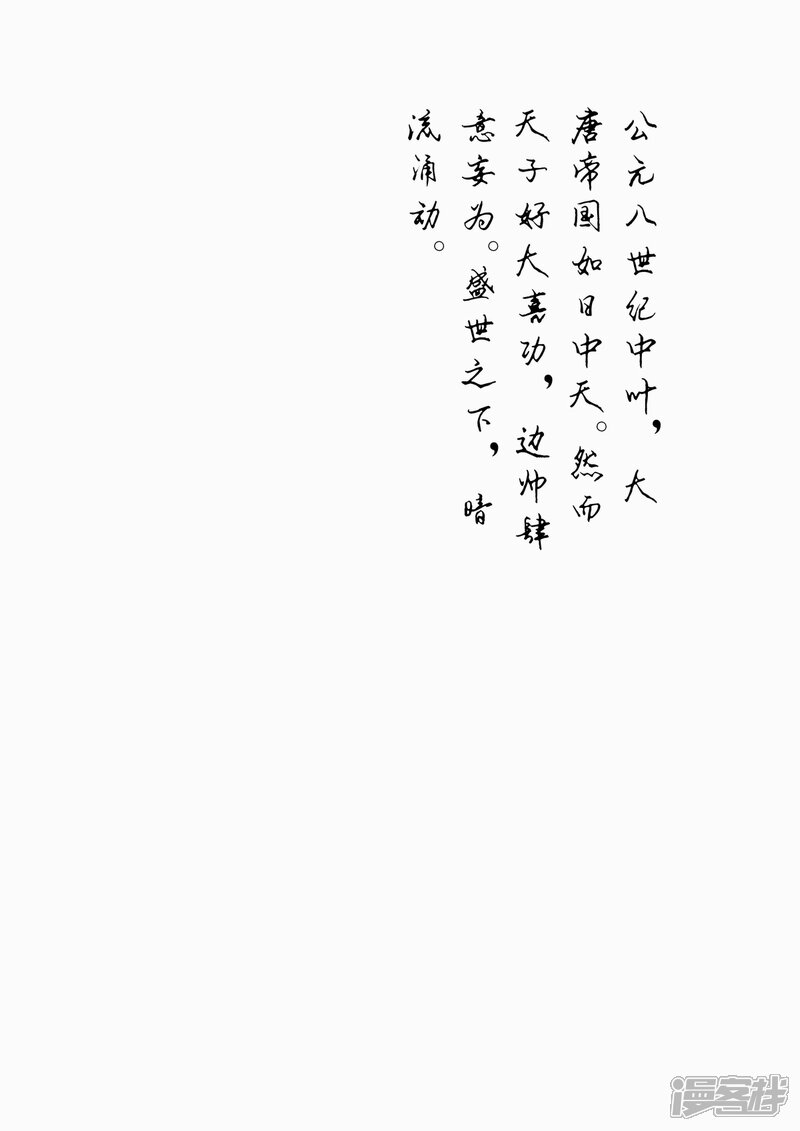 公元八世纪中叶，大
唐帝国如日中天。然而
天子好大喜功，边帅肆
意妄为。盛世之下，暗
流涌动。
漫客栈